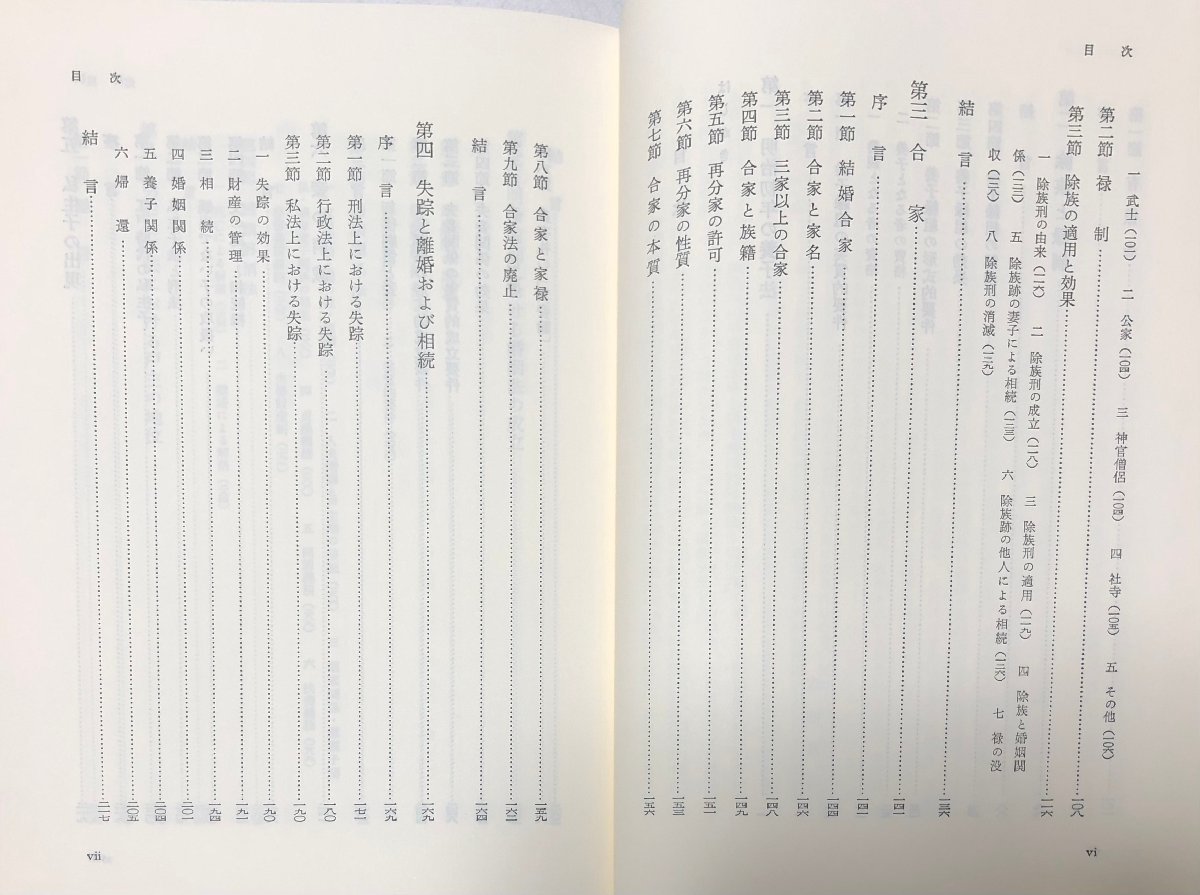 目次
一 武士(一〇一) 二 公家(一〇四) 三 神官僧侶(一〇四) 四 社寺(一〇五) 五 その他(一〇六)
第二節 禄制……一〇八
第三節 除族の適用と効果……一一六
一 除族刑の由来(一一六) 二 除族刑の成立(一一八) 三 除族刑の適用(一一九) 四 除族と婚姻関
係(一三一) 五 除族跡の妻子による相続(一三三) 六 除族跡の他人による相続(一三六) 七 禄の没
収(一三八) 八 除族刑の消滅(一三九)
結言……一三六
第三 合家……一四一
序言……一四一
第一節 結婚合家……一四四
第二節 合家と家名……一四六
第三節 三家以上の合家……一四八
第四節 合家と族籍……一四九
第五節 再分家の許可……一五一
第六節 再分家の性質……一五三
第七節 合家の本質……一五六
vi
目次
第八節 合家と家禄……一五九
第九節 合家法の廃止……一六二
結言……一六四
第四 失踪と離婚および相続……一六九
序言……一六九
第一節 刑法上における失踪……一七一
第二節 行政法上における失踪……一八〇
第三節 私法上における失踪……一九〇
一 失踪の効果……一九〇
二 財産の管理……一九一
三 相続……一九四
四 婚姻関係……二〇一
五 養子関係……二〇四
六 帰還……二〇五
結言……二一七
vii